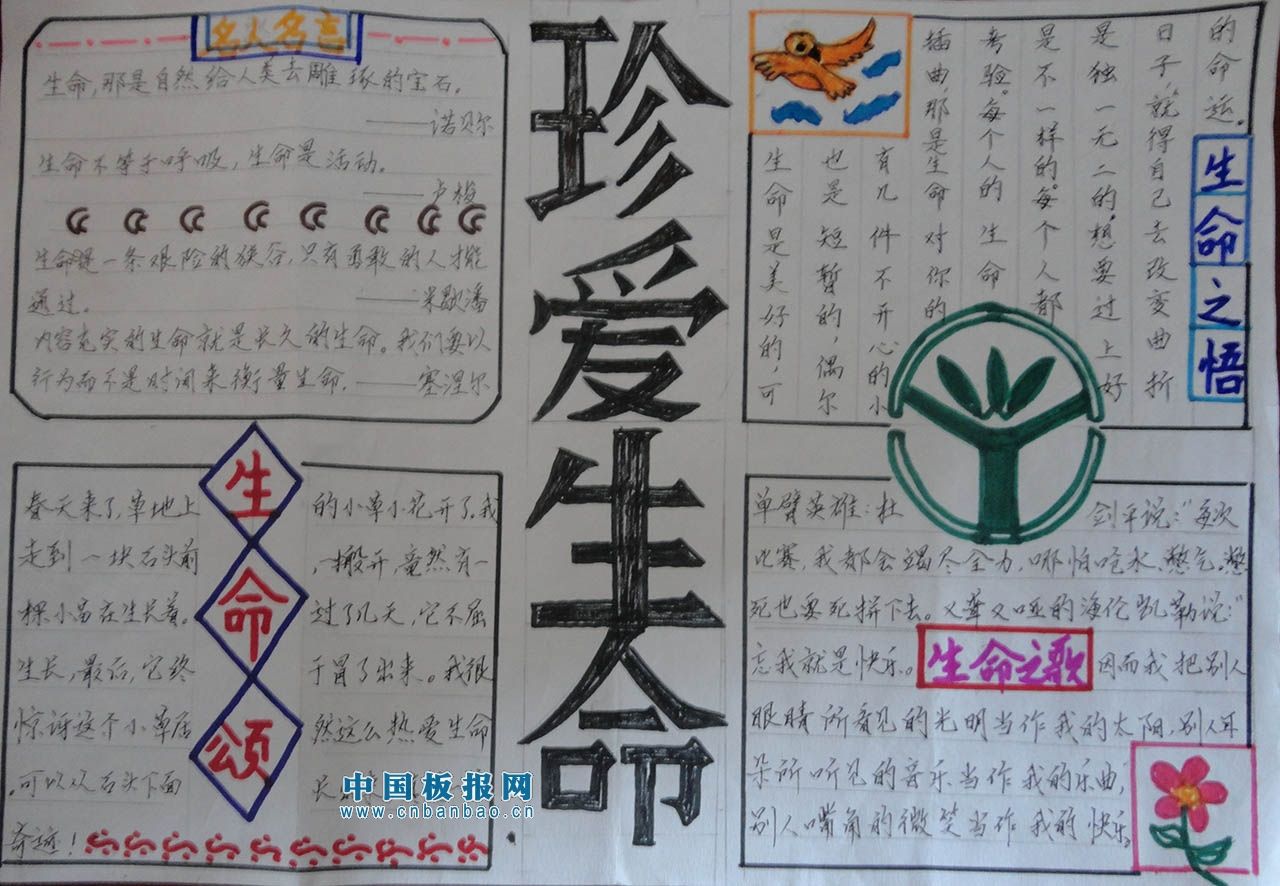 名人名言
生命,那是自然给人类去雕琢的宝石。
——诺贝尔
生命不等于呼吸,生命是活动。
——卢梭
生命是一条艰险的狭谷,只有勇敢的人才能
通过。 ——米歇潘
内容充实的生命就是长久的生命。我们要以
行为而不是时间来衡量生命。——塞涅尔
生命颂
春天来了,草地上的小草小花开了。我
走到一块石头前,一搬开,竟然有一
棵小苗在生长着。过了几天,它不屈
生长,最后,它终于冒了出来。我很
惊讶这个小草居然这么热爱生命
,可以从石头下面长
奇迹!
珍爱生命
生命之悟
生命是美好的,可
也是短暂的,偶尔
有几件不开心的小
插曲,那是生命对你的
考验。每个人的生命
是不一样的。每个人都
是独一无二的,想要过上好
日子,就得自己去改变曲折
的命运。
生命之歌
单臂英雄:杜剑平说:“每次
比赛,我都会竭尽全力,哪怕呛水、憋气。憋
死也要死拼下去。又聋又哑的海伦凯勒说:“
忘我就是快乐。因而我把别人
眼睛所看见的光明当作我的太阳,别人耳
朵所听见的音乐当作我的乐曲,
别人嘴角的微笑当作我的快乐。
中国板报网
www.cnbanbao.cn